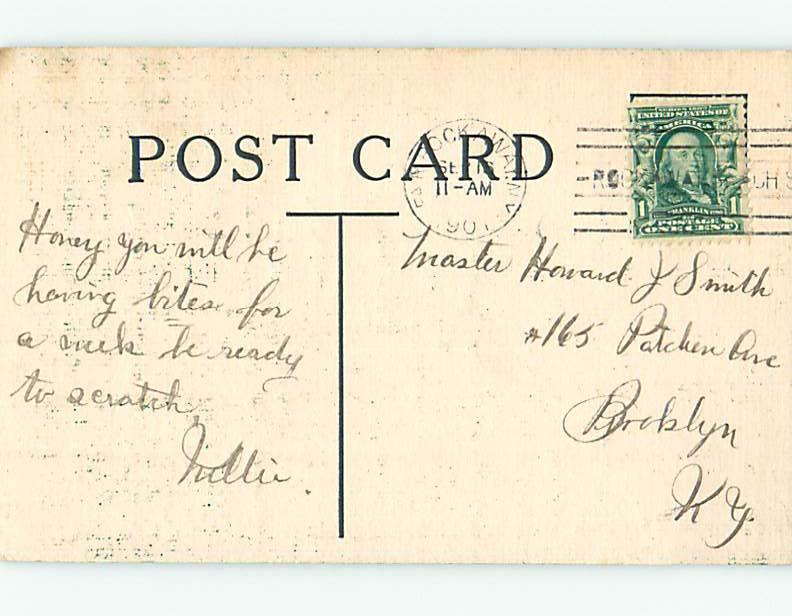 POST CARD
FAR ROCKAWAY, N.Y.
SEP
11-AM
190
SERIES 1902
UNITED STATES OF
AMERICA
1 FRANKLIN 1
POSTAGE
ONE CENT
Honey you will be
having bites for
a week be ready
to scratch
Nellie.
Master Howard J Smith
#165 Patchen Ave
Broklyn
N Y.